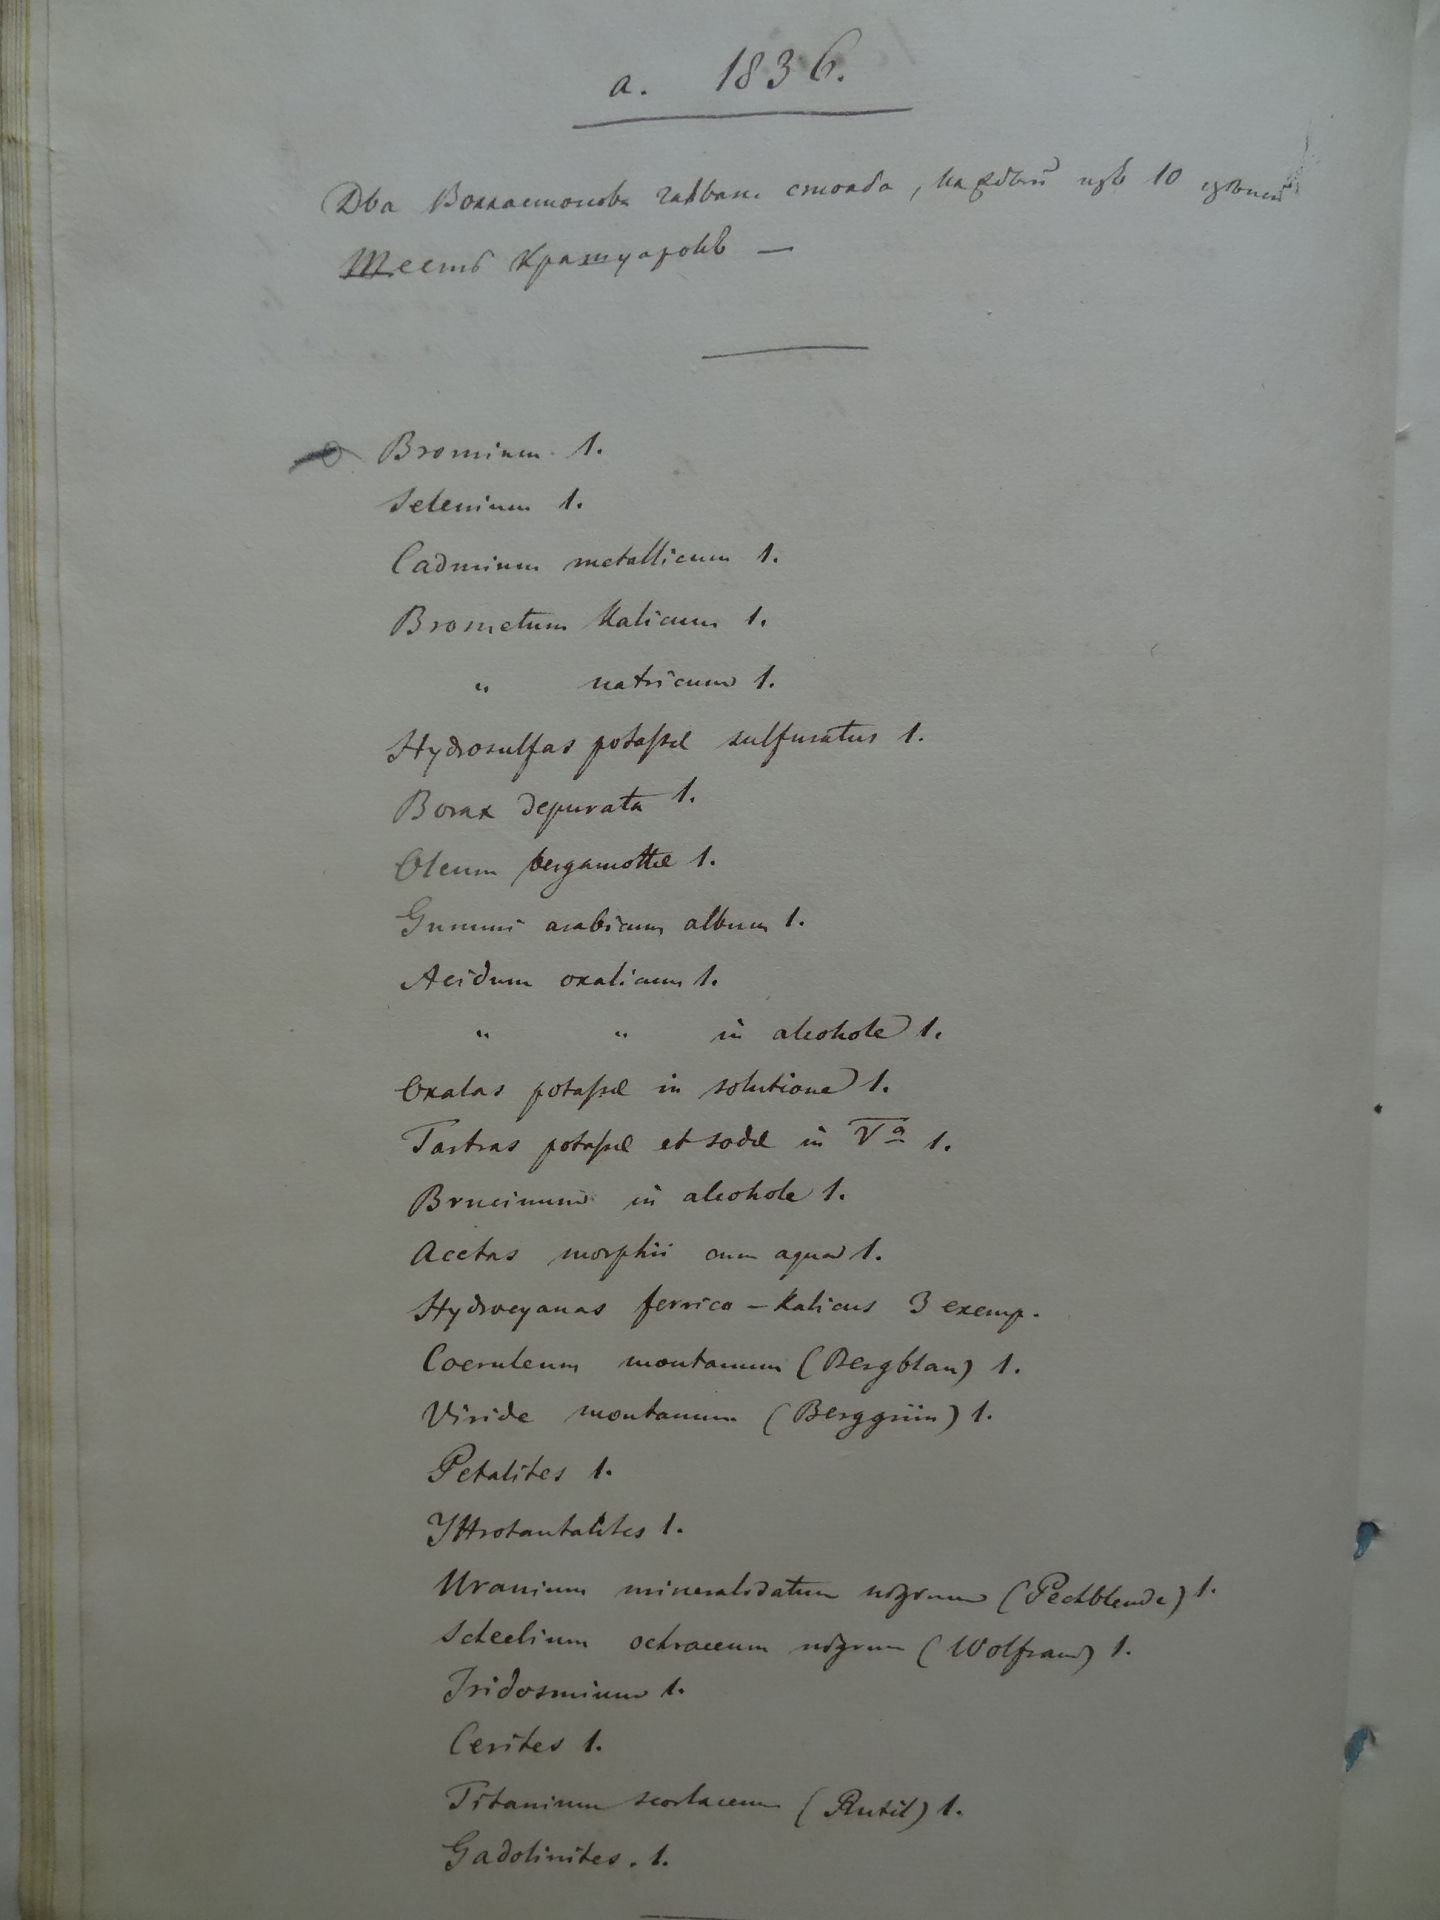 a. 1836.
Два Волластонова галван. столба, каждый изъ 10
Шесть
Bromium. 1.
Selenium 1.
Cadmium metallicum 1.
Brometum Kalicum 1.
" natricum 1.
Hydrosulfas potassæ sulfuratus 1.
Borax depurata 1.
Oleum bergamottæ 1.
Gummi arabicum album 1.
Acidum oxalicum 1.
" " in alcohole 1.
Oxalas potassæ in solutione 1.
Tartras potassæ et sodæ in 1.
Brucinum in alcohole 1.
Acetas morphii cum aqua 1.
Hydrocyanas ferrico-Kalicus 3 exemp.
Coeruleum montanum (Bergblau) 1.
Viride montanum (Berggrün) 1.
Petalites 1.
Yttrotantalites 1.
Uranium mineralisatum nigrum (Pechblende) 1.
Scheelium ochraceum nigrum (Wolfram) 1.
Iridosmium 1.
Cerites 1.
Titanium scorlaceum (Rutil) 1.
Gadolinites. 1.